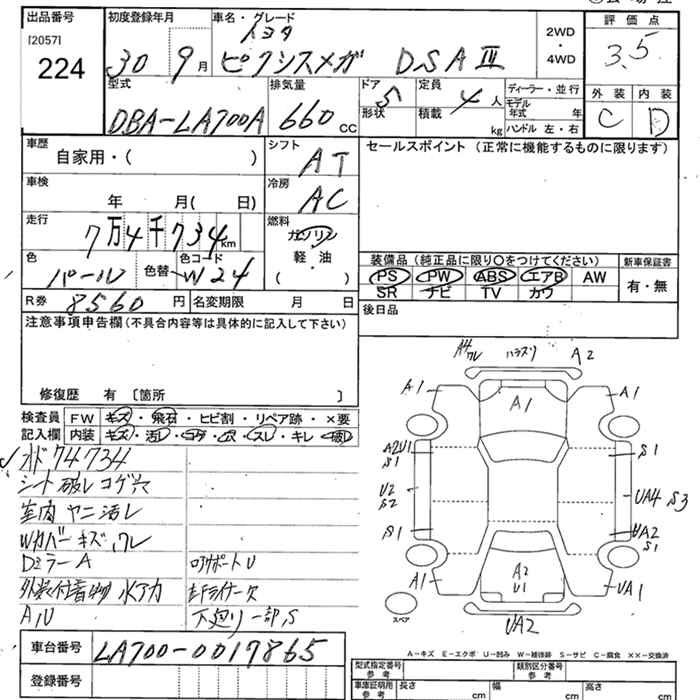 出品番号
[2057]
224
初度登録年月
30 9月
車名・グレード
トヨタ
ピクシスメガ DSAⅢ
2WD
・
4WD
評価点
3.5
型式
DBA-LA700A
排気量
660 CC
ドア
5
形状
定員
4 人
積載
kg
ディーラー・並行
モデル
年式 年
ハンドル 左・右
外装 内装
C D
車歴
自家用・( )
シフト
AT
セールスポイント (正常に機能するものに限ります)
車検
年 月( 日)
冷房
AC
走行
7万4千734km
燃料
ガソリン
軽・油
( ・ )
色
パール
色替
色コード
W24
装備品 (純正品に限り〇をつけてください)
新車保証書
PS PW ABS エアB AW
SR ナビ TV カワ
有・無
R券 8560 円
名変期限 月 日
後日品
注意事項申告欄 (不具合内容等は具体的に記入して下さい)
修復歴 有 〔箇所 〕
検査員
記入欄
FW キズ・飛石・ヒビ割・リペア跡・×要
内装 キズ・汚レ・コゲ・穴・スレ・キレ・破レ
オド 74734
シート破レコゲ穴
室内ヤニ汚レ
Wカバーキズ,ワレ
DミラーA
ロアサポートU
外装付着物 水アカ
左Fライナー欠
A,U
下廻リ一部S
A4 ワレ
ハラスリ
A2
A1
A1
A1
A2U1
S1
S1
U2
S2
UA4 S3
S1
UA2
S1
A1
A2
U1
UA1
スペア
UA2
A−キズ E−エクボ U−凹み W−補修跡 S−サビ C−腐食 ××−交換済
車台番号
LA700-0017865
登録番号
型式指定番号
参考
類別区分番号
参考
車庫証明用
参考
長さ cm
幅 cm
高さ cm